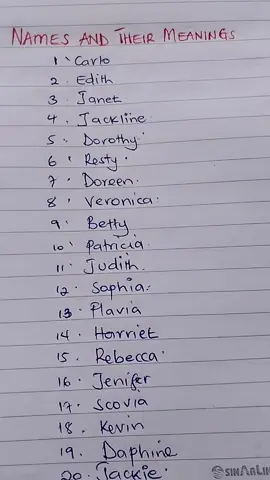 NAMES AND THEIR MEANINGS
1 Carlo
2. Edith
3 Janet
4. Jackline.
5. Dorothy.
6 Resty.
7. Doreen.
8 Veronica.
9. Betty
10 Patricia.
11. Judith.
12. Sophia.
13. Flavia
14. Harriet
15. Rebecca.
16. Jenifer
17. Scovia
18. Kevin
19. Daphine
20. Jackie.